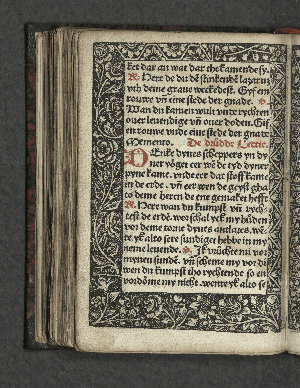 ket dar an wat dar thokamende sy.
R. Here de du dē stinkendē lazarū
vth deme graue weckedest. Gyf en
rouwe vn̄ eine stede der gnade. V.
Wan du kamen wult vnde rychten
ouer leuendige vn̄ ouer doden. Gif
en rouwe vnde eine stede der gnade
Memento. De drüdde Lectie.
DEnke dynes scheppers yn dy
ner yöget eer wē de tyd dyner
pyne kame. vnde eer dat stoff kame
in de erde. vn̄ eer wen de geyst gha
to deme heren de ene gemaket hefft
R. Here wan du kumpst vn̄ rych-
test de erde. wor schal yck my hüden
vor deme torne dynes anlates. wē-
te yk alto sere sundiget hebbe in my
neme leuende. V. Ik vrüchte my vor
mynen sundē. vn̄ scheme my vor di
wen du kumpst tho rychtende so en
vordöme my nicht. wente yk alto se